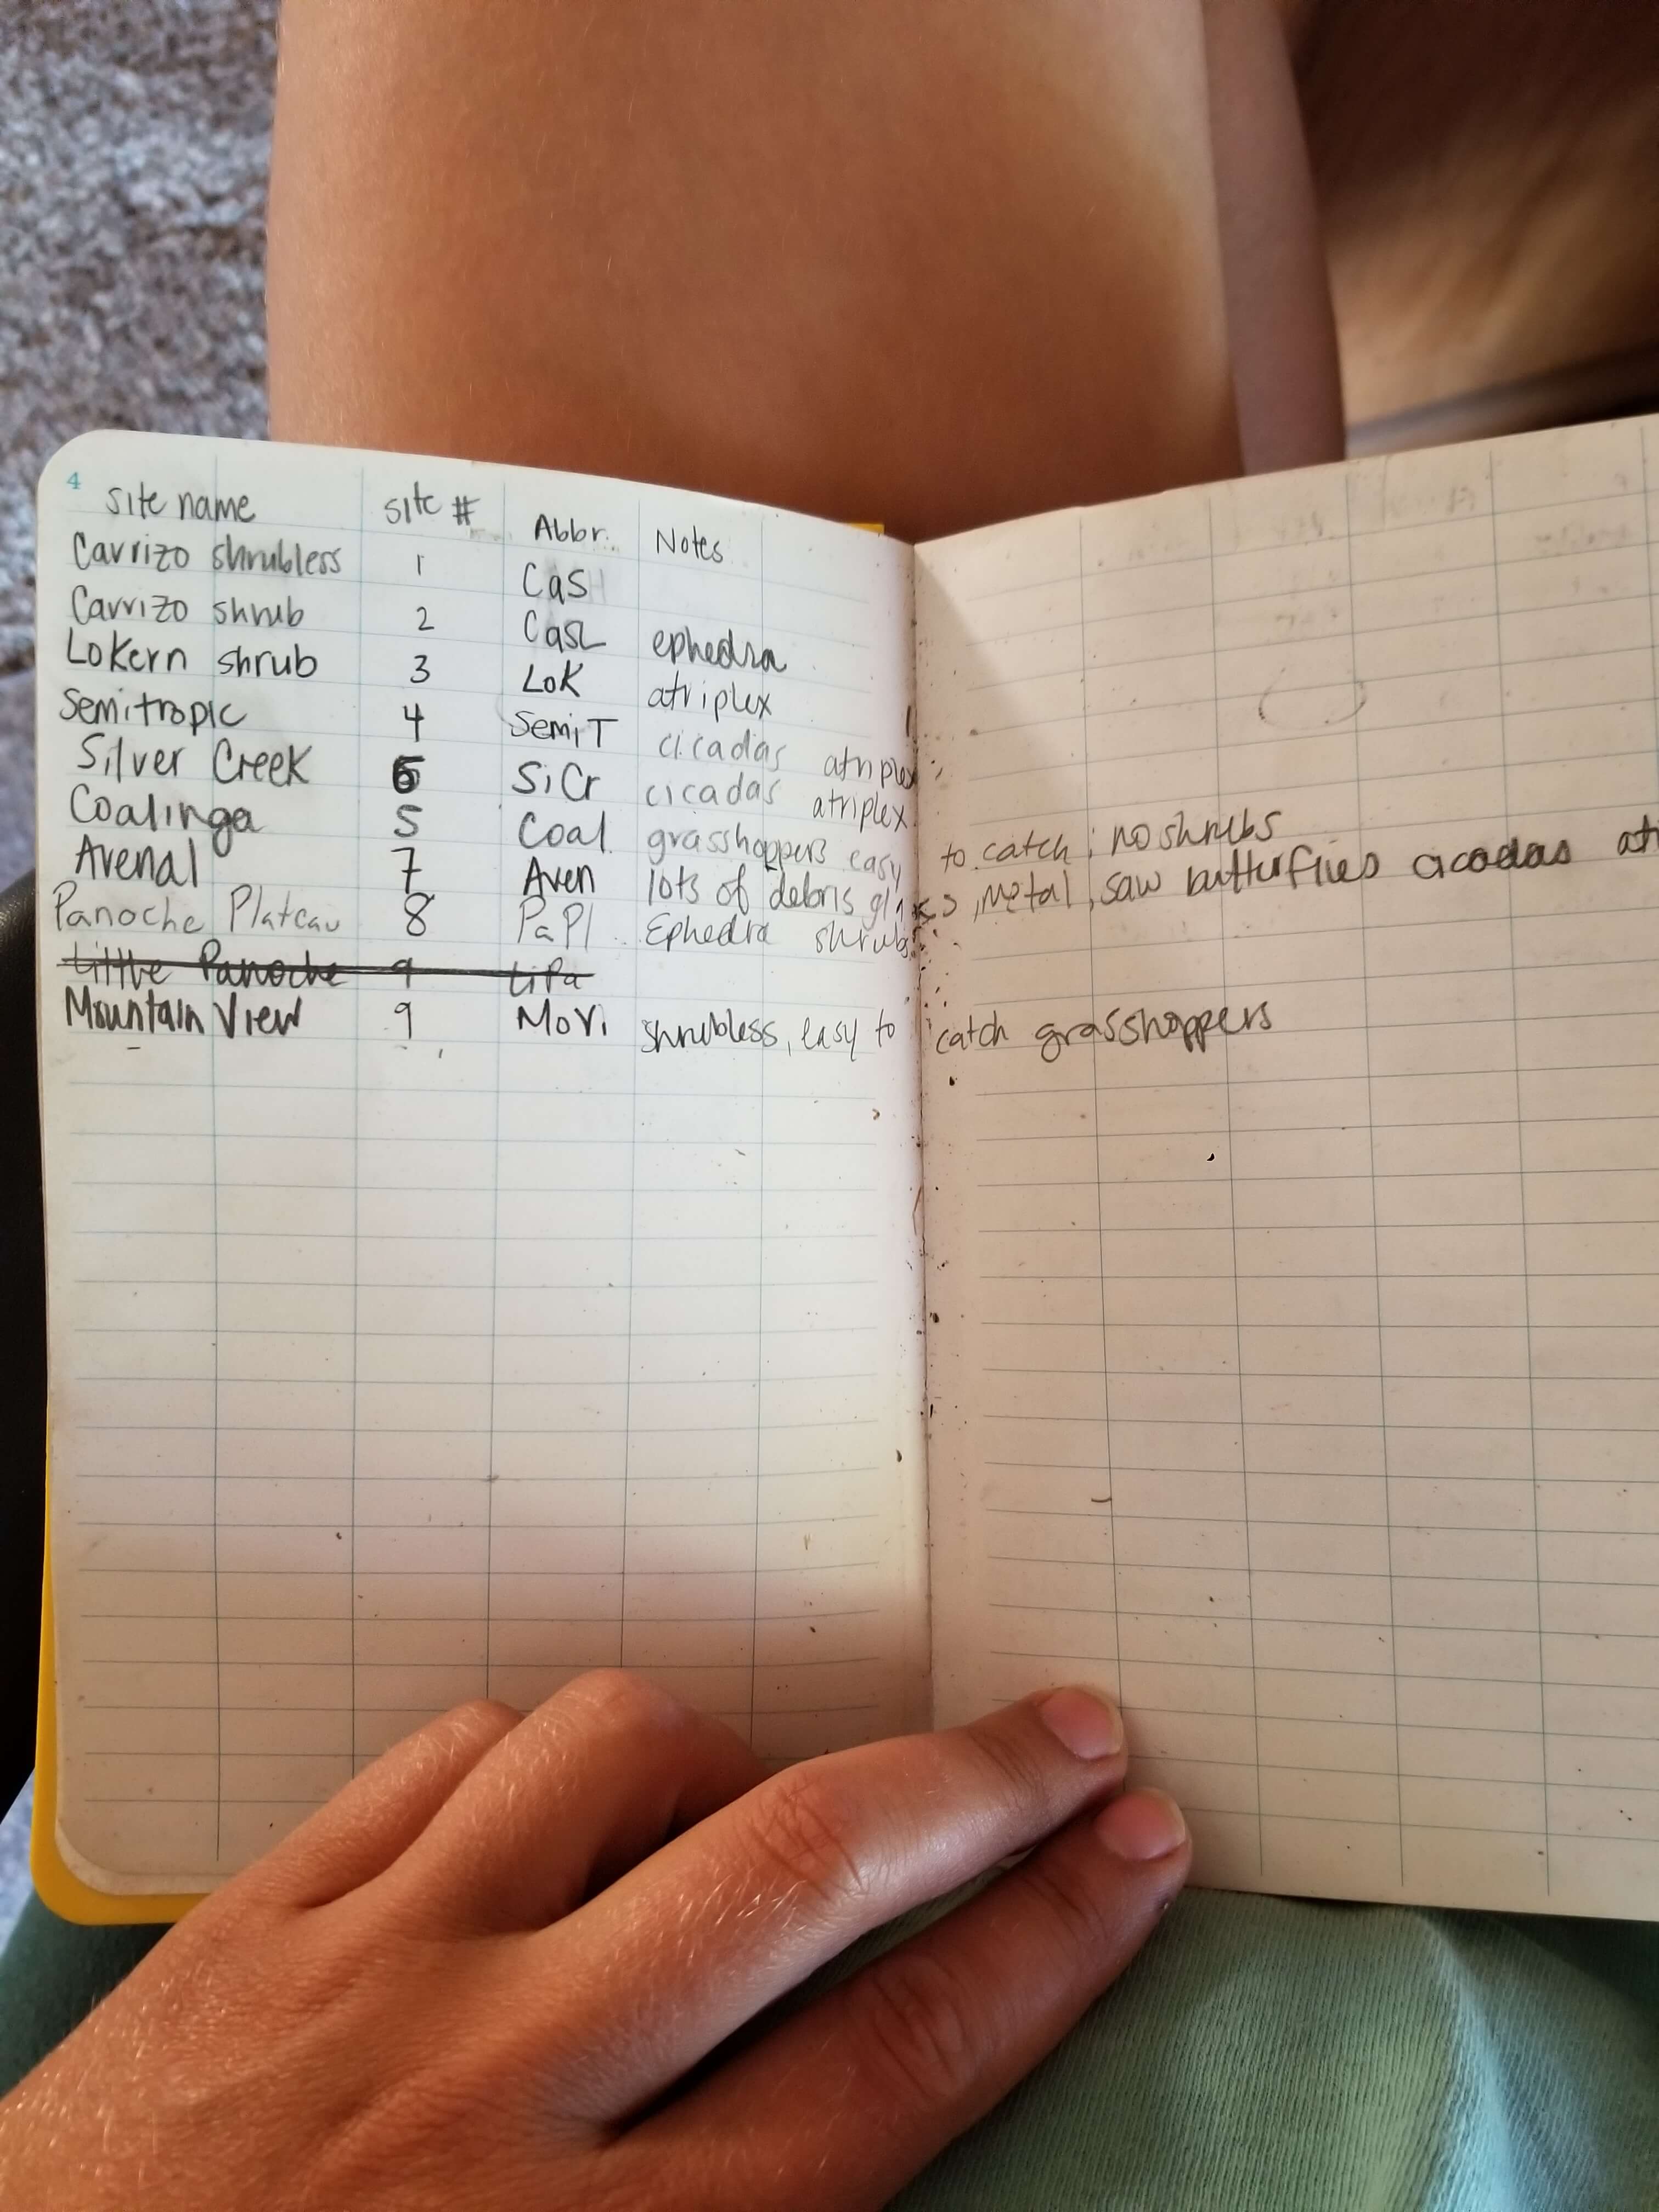 4
Site name Site # Abbr. Notes
Carrizo shrubless 1 CaS
Carrizo shrub 2 CaSL ephedra
Lokern shrub 3 LoK atriplex
Semitropic 4 SemiT cicadas atriplex
Silver Creek 6 SiCr cicadas atriplex
Coalinga 5 Coal grasshoppers easy to catch; no shrubs
Avenal 7 Aven lots of debris glass, metal, saw butterflies cicadas
Panoche Plateau 8 PaPl Ephedra shrubs
Little Panoche 9 LiPa
Mountain View 9 MoVi shrubless, easy to catch grasshoppers